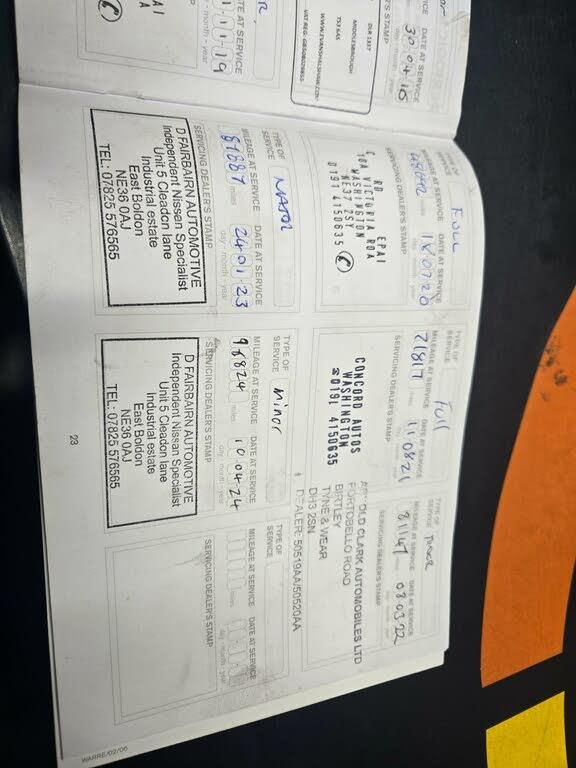 DATE AT SERVICE
30 04 16
day - month - year
DLR 1337
MIDDLESBROUGH
TS3 6AS
WWW.EVANSHALSHAW.COM
DATE AT SERVICE
11 11 19
day - month - year
TYPE OF SERVICE Full
MILEAGE AT SERVICE DATE AT SERVICE
18 07 20
day - month - year
SERVICING DEALER'S STAMP
RD EPAI
10A VICTORIA ROA
WASHINGTON
NE37 2SY
0191 4150635
TYPE OF SERVICE Full
MILEAGE AT SERVICE DATE AT SERVICE
71817 11 08 21
miles day - month - year
SERVICING DEALER'S STAMP
CONCORD AUTOS
WASHINGTON
☎0191 4150635
TYPE OF SERVICE
MILEAGE AT SERVICE DATE AT SERVICE
81147 08 03 22
miles day - month - year
SERVICING DEALER'S STAMP
ARNOLD CLARK AUTOMOBILES LTD
PORTOBELLO ROAD
BIRTLEY
TYNE & WEAR
DH3 2SN
DEALER: 50519AA/50520AA
TYPE OF SERVICE Major
MILEAGE AT SERVICE DATE AT SERVICE
87887 24 01 23
miles day - month - year
SERVICING DEALER'S STAMP
D FAIRBAIRN AUTOMOTIVE
Independent Nissan Specialist
Unit 5 Cleadon lane
Industrial estate
East Boldon
NE36 0AJ
TEL: 07825 576565
TYPE OF SERVICE Minor
MILEAGE AT SERVICE DATE AT SERVICE
98824 10 04 24
miles day - month - year
SERVICING DEALER'S STAMP
D FAIRBAIRN AUTOMOTIVE
Independent Nissan Specialist
Unit 5 Cleadon lane
Industrial estate
East Boldon
NE36 0AJ
TEL: 07825 576565
TYPE OF SERVICE
MILEAGE AT SERVICE DATE AT SERVICE
miles day - month - year
SERVICING DEALER'S STAMP
23
WARRE/02/06